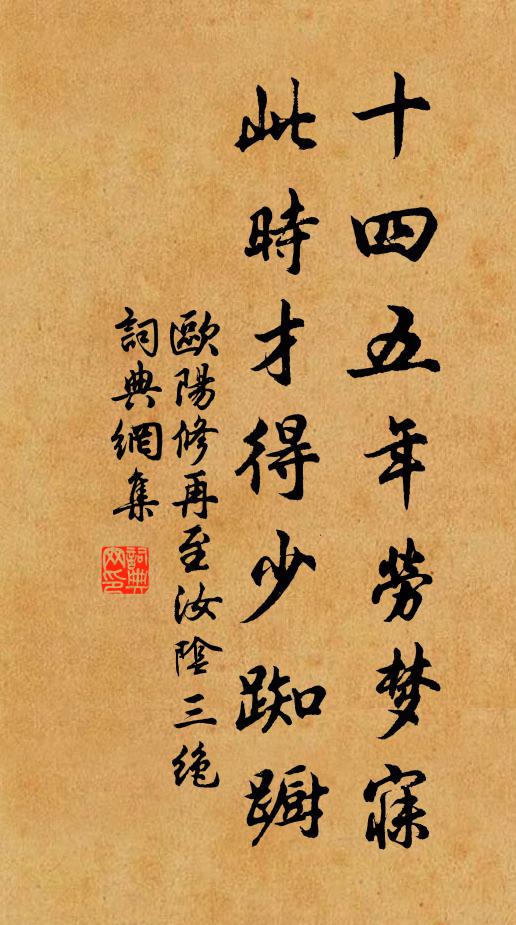 十四五年劳梦寐
此時才得少踟蹰
歐陽修再至汝陰三绝
詞典網集
詞典網印